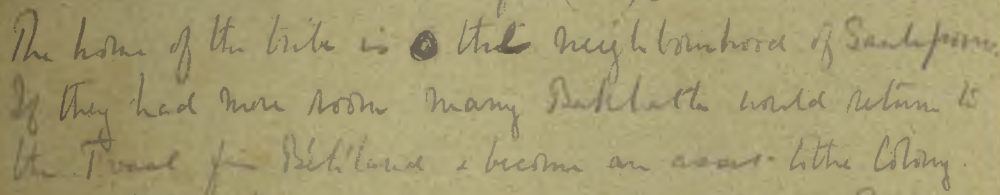 The home of the tribe is the neighbourhood of Saulspoort.
If they had more room many Bakhatla would return to
the Tvaal fm B'ch'land & become an asset to the Colony.